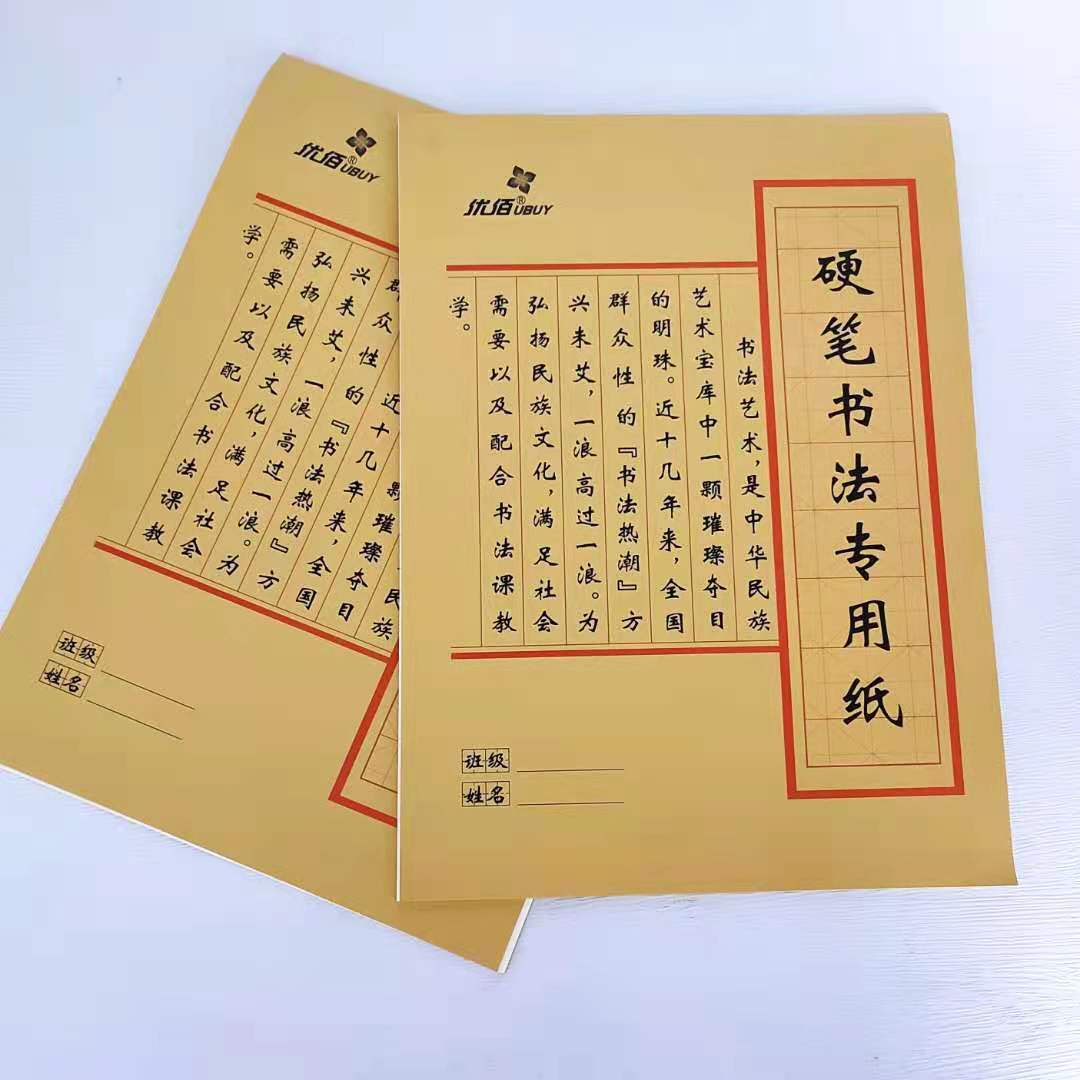 优佰®UBUY
硬笔书法专用纸
书法艺术,是中华民族
艺术宝库中一颗璀璨夺目
的明珠。近十几年来,全国
群众性的『书法热潮』方
兴未艾,一浪高过一浪。为
弘扬民族文化,满足社会
需要以及配合书法课教
学。
班级
姓名
优佰®UBUY
民族
颗璀璨夺目
近十几年来,全国
群众性的『书法热潮』方
兴未艾,一浪高过一浪。为
弘扬民族文化,满足社会
需要以及配合书法课教
学。
班级
姓名